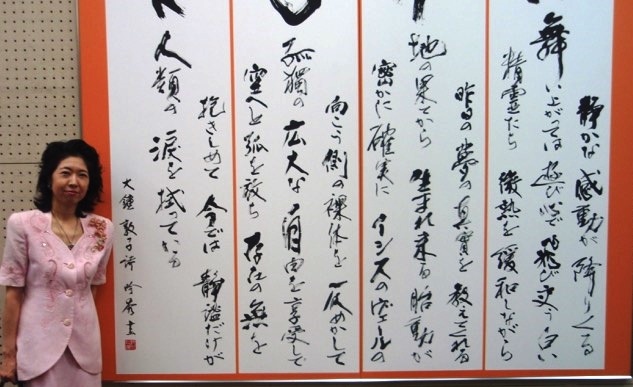 静かな感動が降りくる
舞い上がっては 遊び心で飛び交う白い
精霊たち 微熱を緩和しながら
昨日の夢の真実を教えてくれる
地の果てから 生まれ来る胎動が
密かに確実に イシスのヴェールの
向こう側の裸体を 仄めかして
孤獨の広大な自由を享受して
空へと弧を放ち 存在の無を
抱きしめて 今では静謐だけが
人類の 涙を拭っている
大鐘敦子詩 書